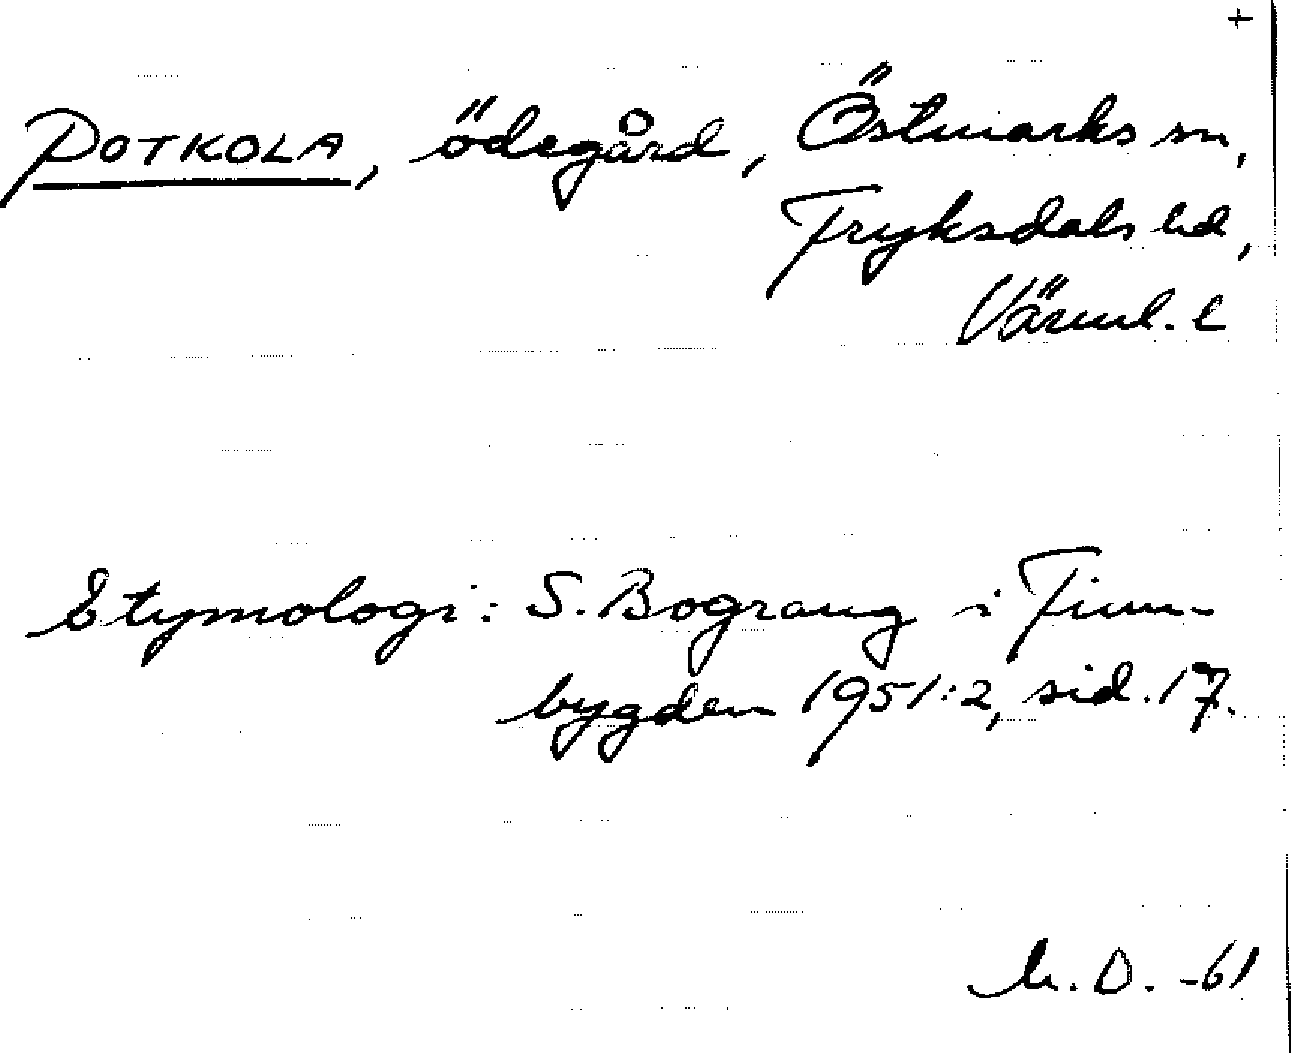 +
POTKOLA, ödegård, Östmarks sn,
Fryksdals hd,
Värml. l
Etymologi: S. Bograng i Finn-
bygden 1951:2, sid. 17.
D. -61